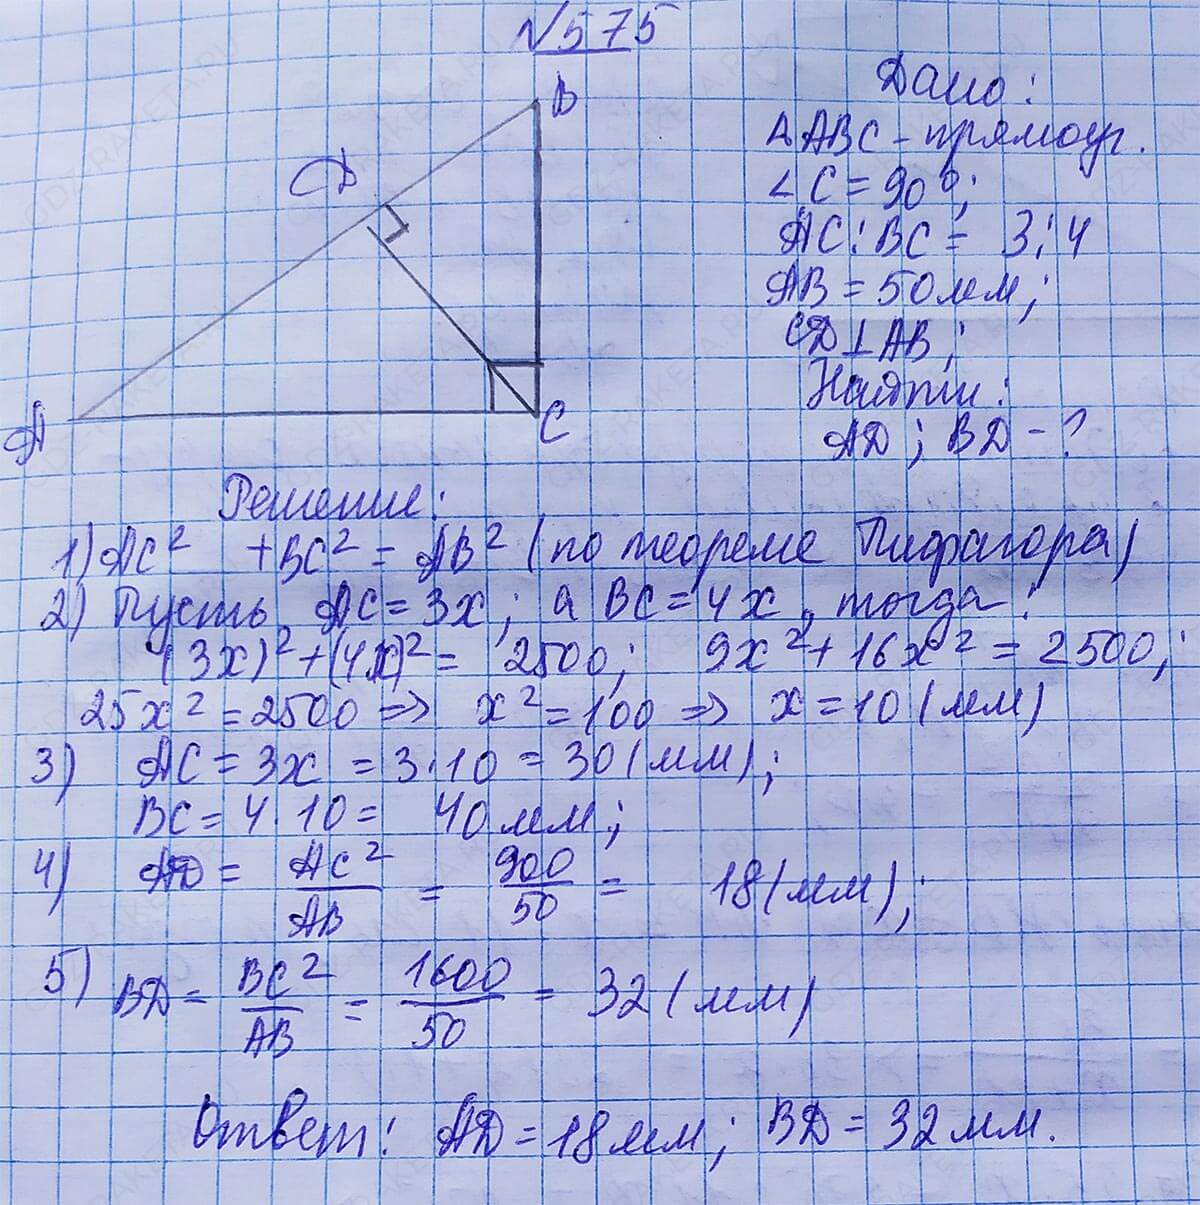 №575
Дано:
△ABC - прямоуг.
∠C = 90°;
AC : BC = 3 : 4
AB = 50 мм;
CD ⊥ AB;
Найти:
AD ; BD - ?
B
D
A
C
Решение:
1) AC² + BC² = AB² (по теореме Пифагора)
2) Пусть AC = 3x ; а BC = 4x , тогда :
(3x)² + (4x)² = 2500; 9x² + 16x² = 2500;
25x² = 2500 => x² = 100 => x = 10 (мм)
3) AC = 3x = 3 · 10 = 30 (мм);
BC = 4 · 10 = 40 мм;
4) AD = AC²/AB = 900/50 = 18 (мм);
5) BD = BC²/AB = 1600/50 = 32 (мм)
Ответ: AD = 18 мм; BD = 32 мм.